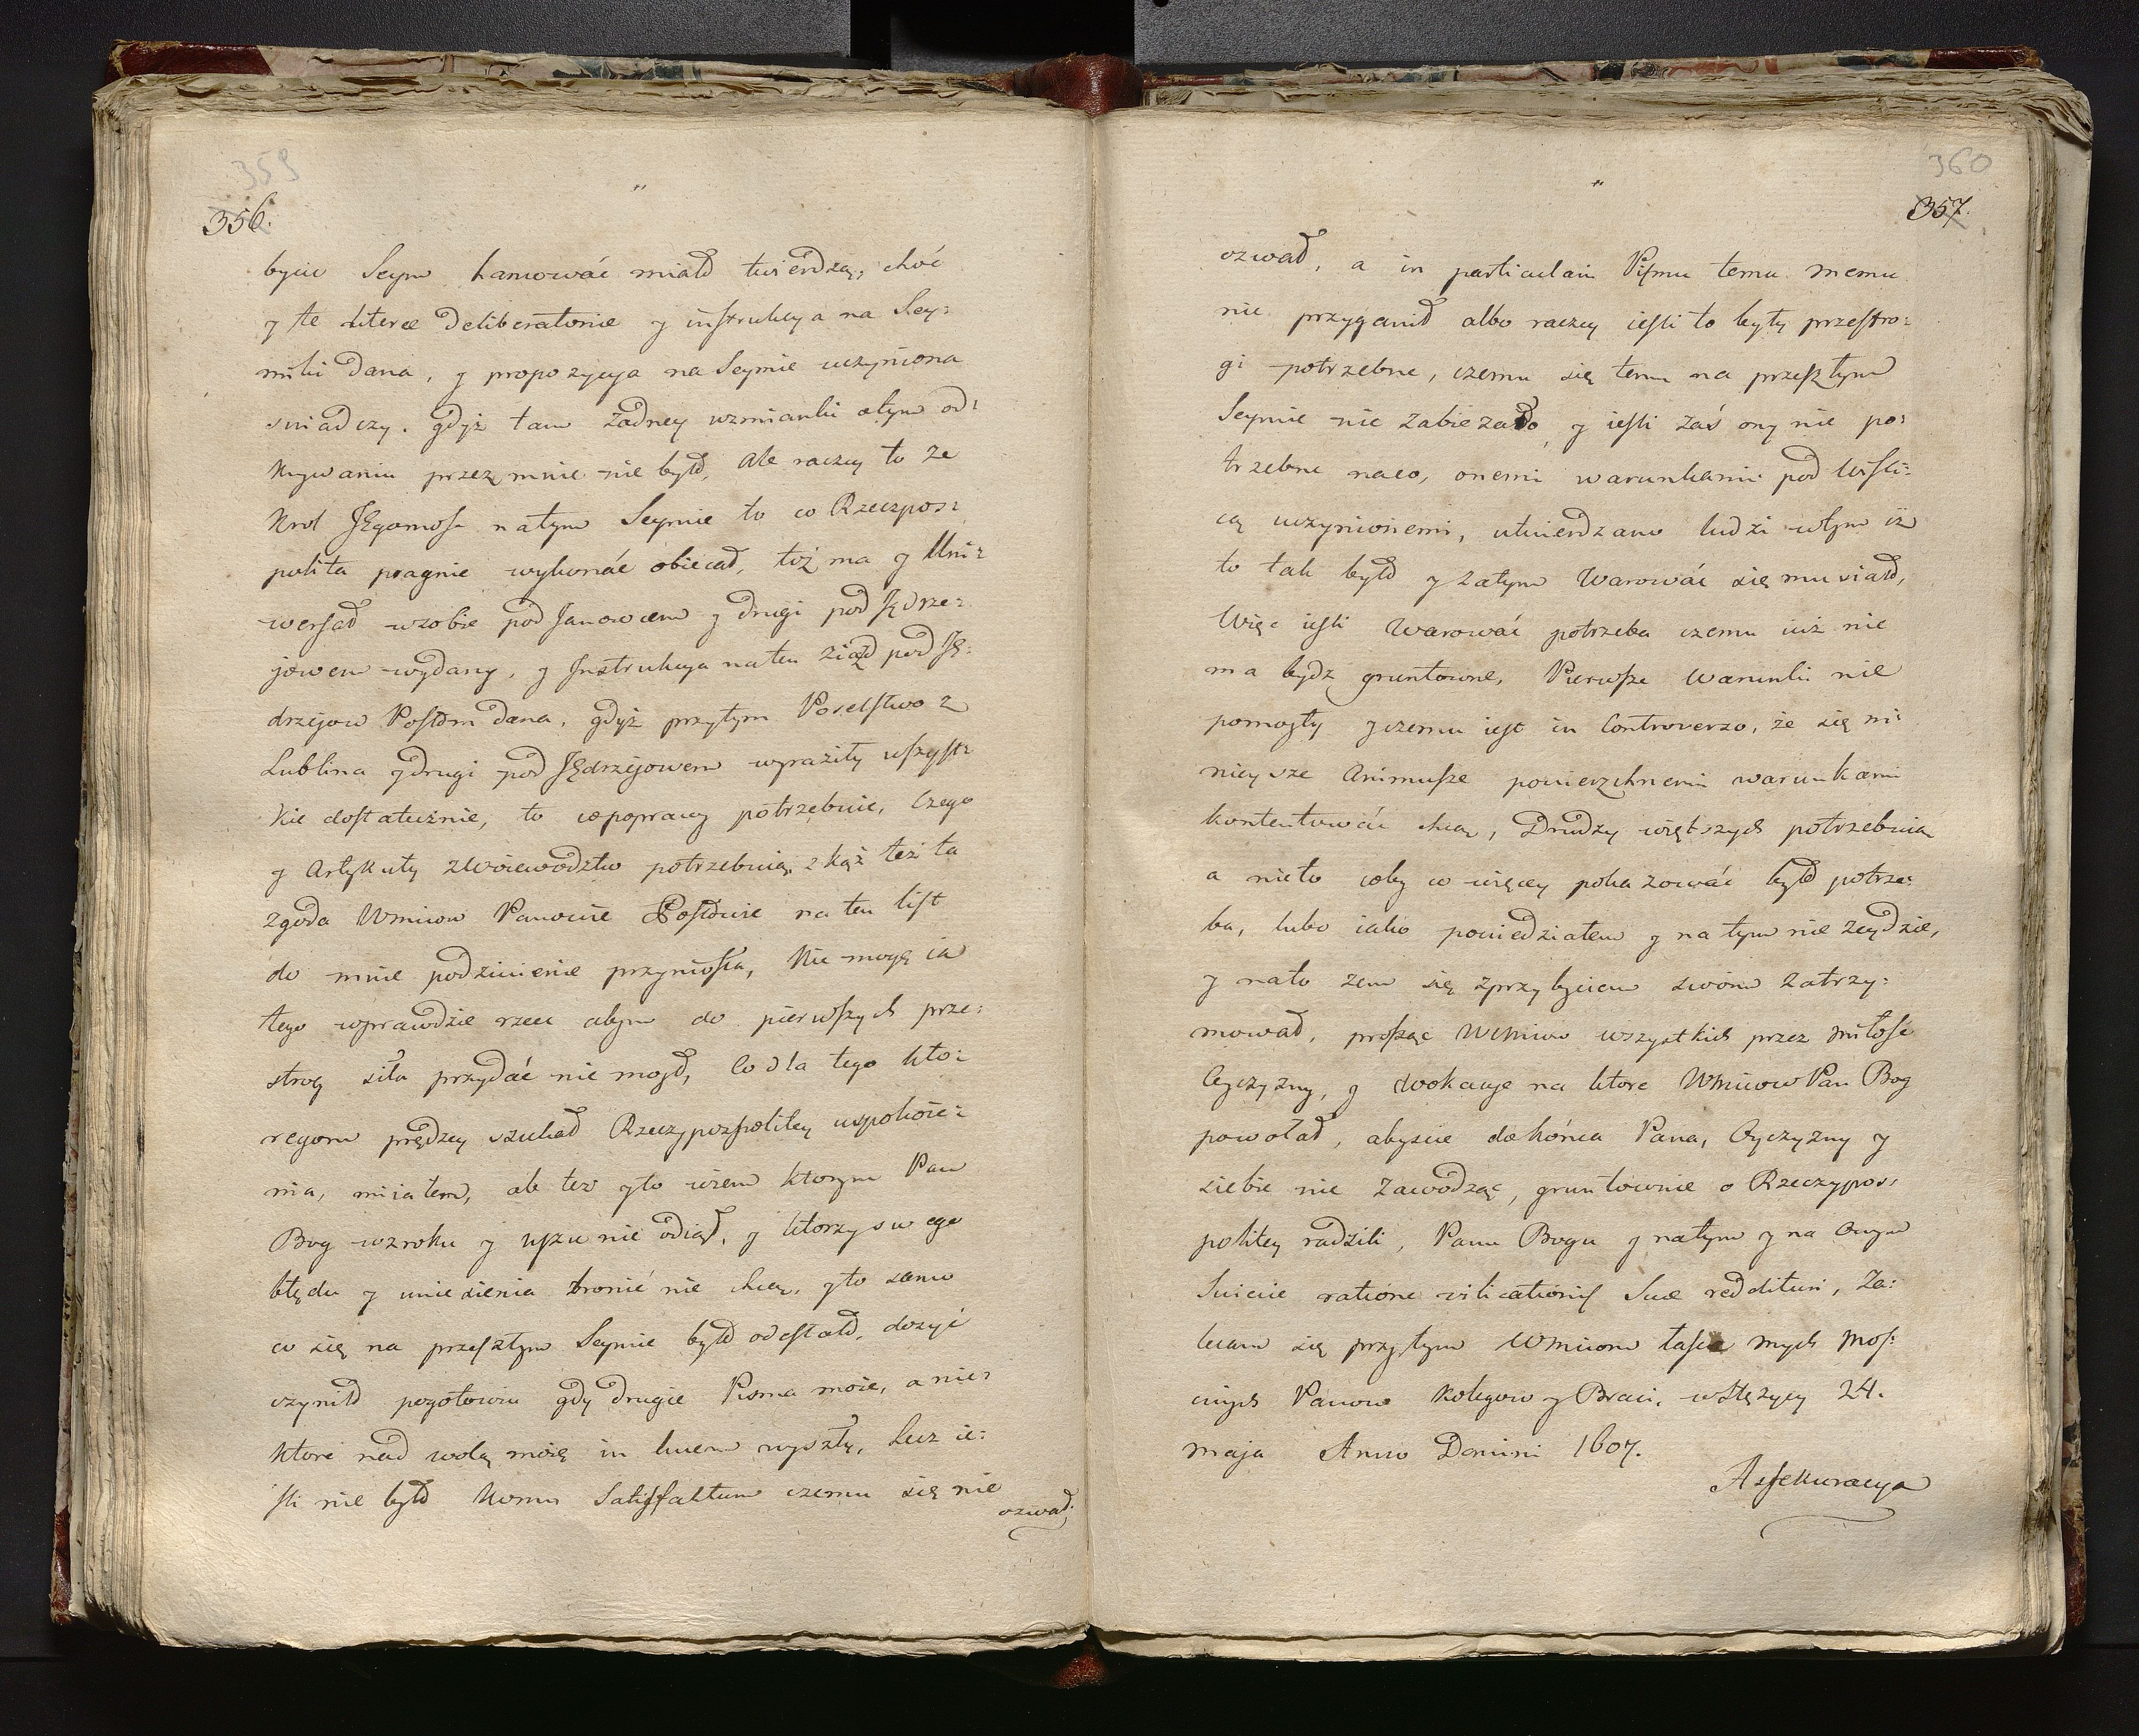 359
356.
bycie Seym hamować miał twierdzą, choć
y te literæ deliberatoriæ y instrukcya na Sey=
miki dana, y propozycya na Seymie uczyniona
swiadczy. gdyż tam żadney wzmianki otym od=
krywaniu przez mnie nie było, ale raczey to że
Krol JEgomość natym Seymie to co Rzeczpos=
polita pragnie wykonać obiecał, toż ma y Uni=
wersał wsobie pod Janowcem y drugi pod Jędrze=
jowem wydany, y Instrukcya na ten ziazd pod JĘ=
drzejow Posłom dana, gdyż przytym Poselstwo z
Lublina y drugi pod JĘdrzejowem wyraziły wszyst=
kie dostatecznie, to co poprawy potrzebuie, Czego
y Artykuły z Woiewodztw potrzebuią, zkąż też ta
zgoda Wmciow Panowie Posłowie na ten list
do mnie podziwienie przyniosła, Nie mogę ia
tego wprawdzie rzec abym do pierwszych prze=
strog siła przydać nie mogł, Co dla tego kto=
regom prędzey szukał Rzeczypospolitey uspokoie=
nia, miiałem, ale też y to wiem ktorym Pan
Bog wzroku y uszu nie odiął, y ktorzy swego
błędu y uniesienia bronić nie chcą, y to samo
co się na przeszłym Seymie było odestało, dosyć
czyniło pogotowiu gdy drugie Pisma moie, a nie=
ktore nad wolą moię in lucem wyszły, Lecz ie=
sli nie było komu Satisfaktum czemu się nie
ozwał.
360
357.
ozwał, a in particulari Pismu temu memu
nie przyganił albo raczey iesli to były przestro=
gi potrzebne, czemu się temu na przeszłym
Seymie nie zabieżało, y iesli zaś ony nie po=
trzebne naco, onemi warunkami pod Wisli=
cą uczynionemi, utwierdzano ludzi wtym iż
to tak było y zatym Warować się musiało,
Więc iesli Warować potrzeba czemu iuż nie
ma bydz gruntowne, Pierwsze Warunki nie
pomogły y czemu iest in Controverso, że się ni=
nieysze Animusze powierzchnemi warunkami
kontentować chcą, Drudzy więtszych potrzebuią
a nieto coby co więcey pokazować było potrze=
ba, lubo iako powiedziałem y na tym nie zeydzie,
y nato żem się z przybyciem swoim zatrzy=
mował, prosząc WMciow wszystkich przez miłość
Oyczyzny, y Wokacye na ktore WMciow Pan Bog
powołał, abyscie do końca Pana, Oyczyzny y
siebie nie zawodząc, gruntownie o Rzeczypos=
politey radzili, Panu Bogu y natym y na Onym
Swiecie ratione vilicationis Suæ reddituri, Za=
lecam się przytym WMciom łasce mych Mos=
ciwych Panow Kolegow y Braci. w Stężycy 24.
maja Anno Domini 1607.
Assekuracya